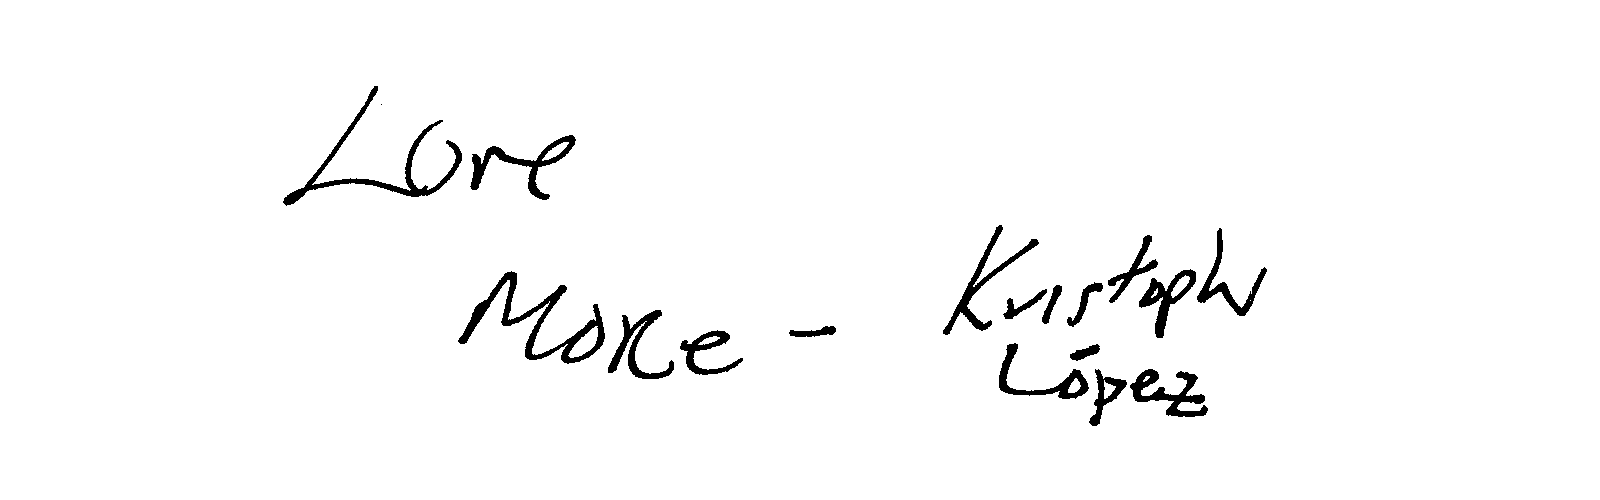 Love
More -
Kristoph
López